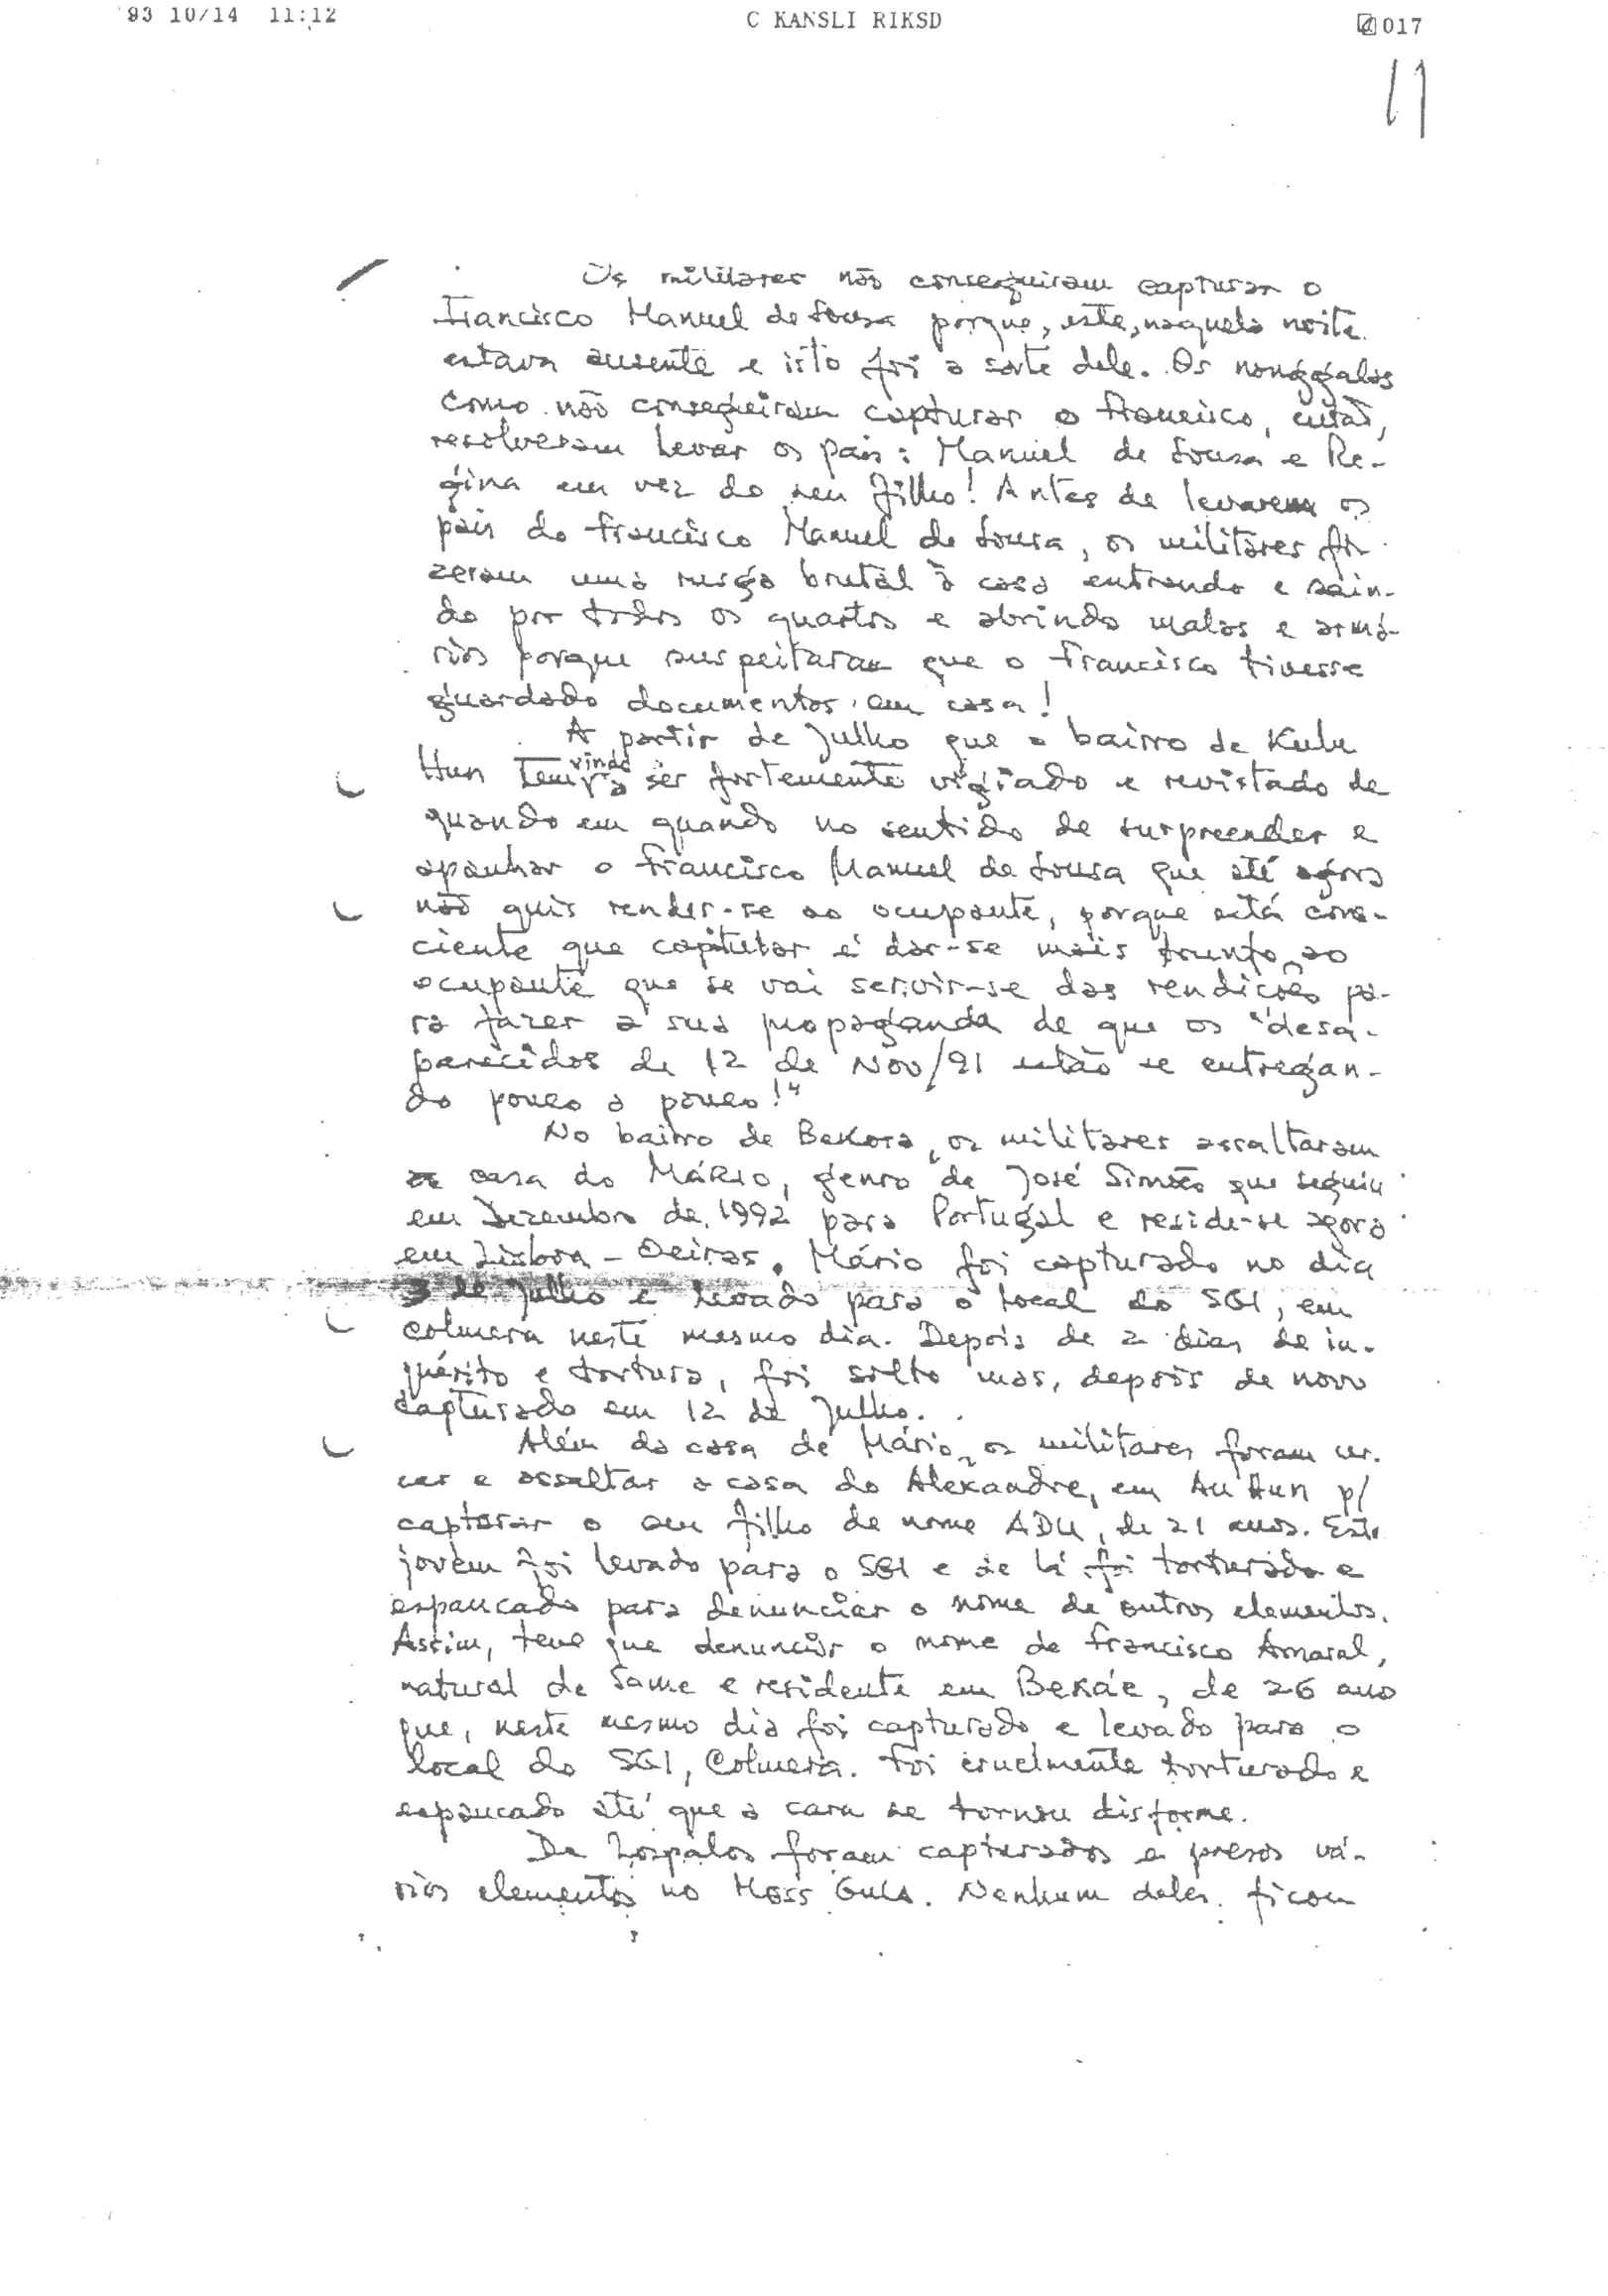 '93 10/14 11:12 C KANSLI RIKSD 017
11
Os militares não conseguiram capturar o
Francisco Manuel de Sousa porque, este, naquela noite
estava ausente e isto foi a sorte dele. Os nanggalas
como não conseguiram capturar o Francisco, então,
resolveram levar os pais: Manuel de Sousa e Re-
gina em vez do seu filho! Antes de levarem os
pais do Francisco Manuel de Sousa, os militares fi-
zeram uma rusga brutal à casa entrando e sain-
do por todos os quartos e abrindo malas e armá-
rios porque suspeitaram que o Francisco tivesse
guardado documentos em casa!
A partir de Julho que o bairro de Kulu
Hun tem vindo a ser fortemente vigiado e revistado de
quando em quando no sentido de surpreender e
apanhar o Francisco Manuel de Sousa que até agora
não quis render-se ao ocupante, porque está cons-
ciente que capitular é dar-se mais trunfo ao
ocupante que se vai servir-se das rendições pa-
ra fazer a sua propaganda de que os "desa-
parecidos de 12 de Nov/91 estão se entregan-
do pouco a pouco!"
No bairro de Bekora, os militares assaltaram
a casa do MÁRIO, genro de José Simões que seguiu
em Dezembro de 1992 para Portugal e reside-se agora
em Lisboa - Oeiras. Mário foi capturado no dia
3 de Julho e levado para o local do SGI, em
Colmera neste mesmo dia. Depois de 2 dias de in-
quérito e tortura, foi solto mas, depois de novo
capturado em 12 de Julho.
Além da casa de Mário, os militares foram cer-
car e assaltar a casa do Alexandre, em Au Hun p/
capturar o seu filho de nome ADU, de 21 anos. Este
jovem foi levado para o SGI e de lá foi torturado e
espancado para denunciar o nome de outros elementos.
Assim, teve que denunciar o nome de Francisco Amaral,
natural de Same e residente em Bekáe, de 26 ano
que, neste mesmo dia foi capturado e levado para o
local do SGI, Colmera. Foi cruelmente torturado e
espancado até que a cara se tornou disforme.
De Lospalos foram capturados e presos vá-
rios elementos no Mass Gula. Nenhum deles ficou